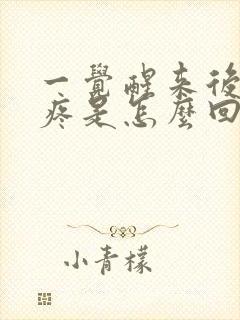 一覺醒来後
疼是怎麼回
小青檬